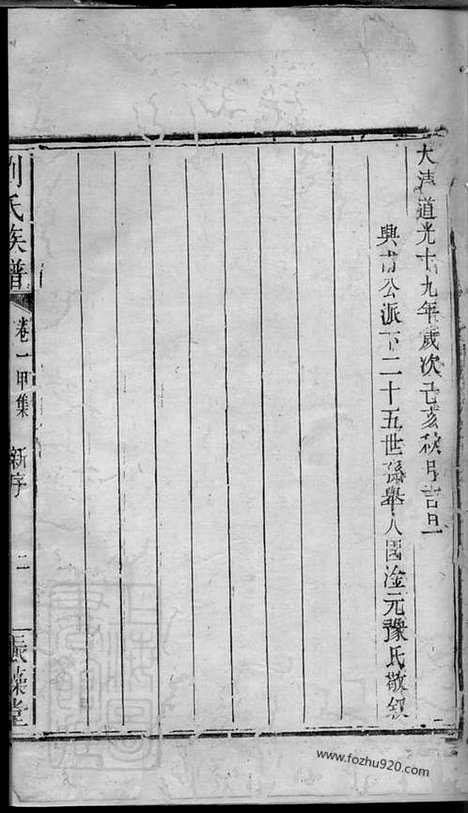 大清道光十九年歲次己亥秋月吉旦
與甫公派下二十五世孫舉人國淦元豫氏敬叙
劉氏族譜
卷一甲集
新序
二
振藻堂
www.fozhu920.com